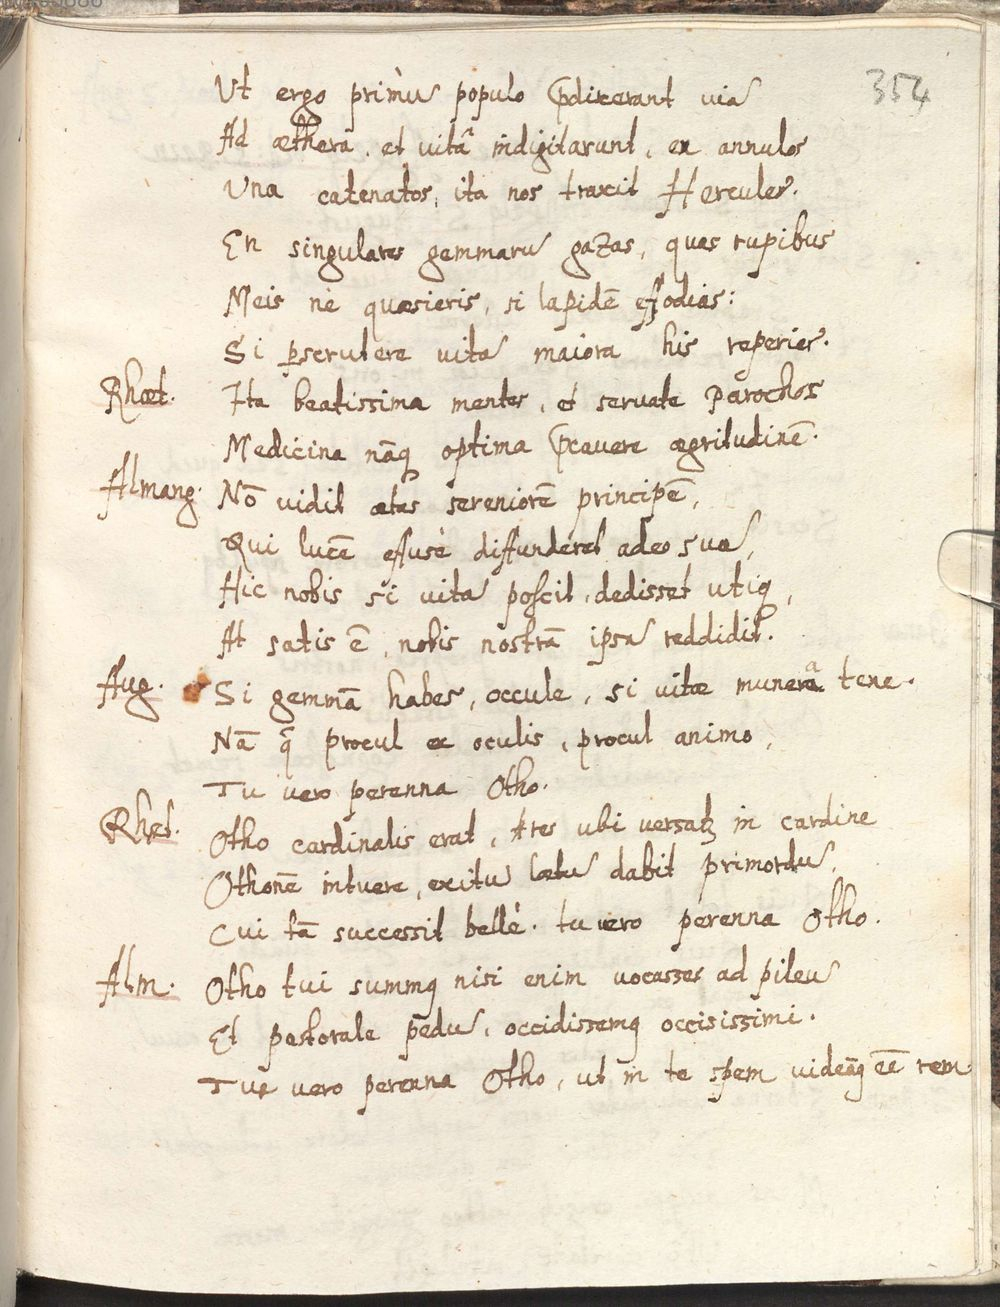 354
Ut ergo primũ populo p̃dixerant uiã
Ad æthera, et uitã indigitarunt, ex annulos
Una catenatos, ita nos traxit Hercules.
En singulares gemmarũ gazas, quas rupibus
Meis nè quæsieris, si lapidẽ effodias:
Si p̱scrutere uitã maiora his reperies.
Rhæt. Ita beatissima mentes, et seruate parochos
Medicina nãq optima p̃cauere ægritudinẽ.
Almang. Nõ uidit ætas sereniorẽ principẽ,
Qui lucẽ effusè diffunderet adeo suã,
Hic nobis si uitã poscit, dedisset utiq,
At satis ẽ, nobis nostrã ipsã reddidit.
Aug. Si gemmã habes, occule, si uitæ munera a tene.
Nã q̃ procul ex oculis, procul animo,
Tu uero perenna Otho.
Rhæt. Otho cardinalis erat, tres ubi uersatꝫ in cardine
Othonẽ intuere, exitũ lætũ dabit primordũ,
Cui tã successit bellè. tu uero perenna Otho.
Alm. Otho tui summq nisi enim uocasses ad pileũ
Et pastorale pedũ, occidissemq occisissimi.
Tuq uero perenna Otho, ut in te spem uideãq eẽ rem.